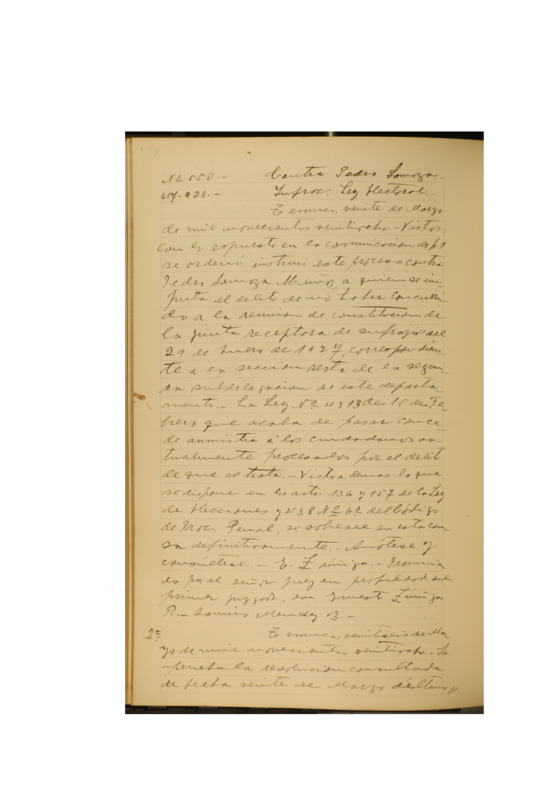 No 550.- Contra Pedro Somoza.-
614-928.- Infrac. Ley Electoral.-
Temuco, veinte de Marzo
de mil novecientos veintiocho.- Vistos:
Con lo expuesto en la comunicacion de f 1
se ordenó instruir este proceso contra
Pedro Somoza Muñoz, a quien se im-
puta el delito de no haber concurri-
do a la reunion de constitucion de
la junta receptora de sufrajios del
29 de Enero de 1927, correspondien-
te a la seccion sesta de la segun-
da subdelegacion de este departa-
mento.- La Ley No 4313 de 15 de Fe-
brero que acaba de pasar conce-
de amnistia a los ciudadanos ac-
tualmente procesados por el delito
de que se trata.- Visto ademas lo que
se dispone en los arts. 136 y 157 de la Ley
de Elecciones y 438 No 6o del Código
de Proc. Penal, se sobresee en esta cau-
sa definitivamente.- Anótese y
consúltese.- E. Zúñiga.- Pronuncia-
da por el señor juez en propiedad del
primer juzgado, don Ernesto Zúñiga
P.- Ramiro Mendez B.-
2a Temuco, veintiseis de Ma-
yo de mil novecientos veintiocho.- Se
aprueba la resolucion consultada
de fecha veinte de Marzo último,